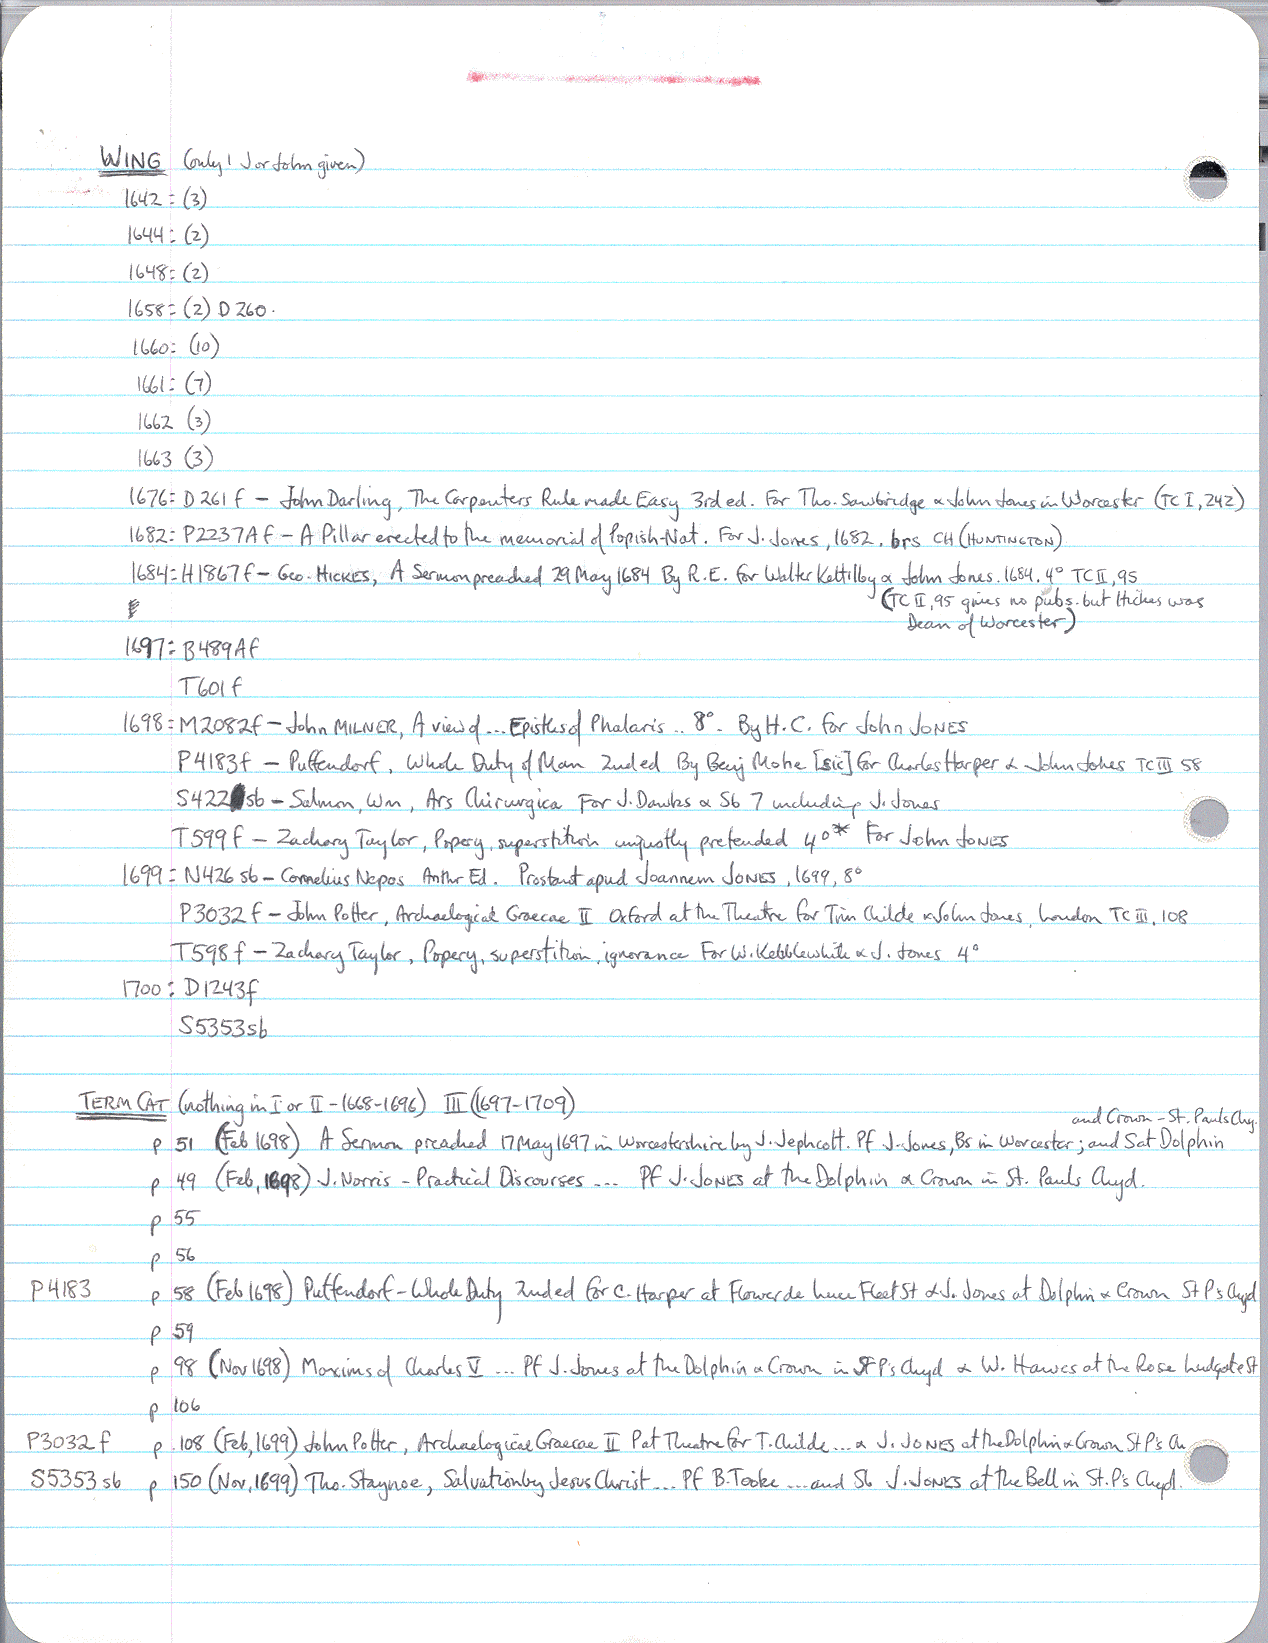 WING (only 1 J or John given)
1642: (3)
1644: (2)
1648: (2)
1658: (2) D260.
1660: (10)
1661: (7)
1662 (3)
1663 (3)
1676: D261f - John Darling, The Carpenters Rule made Easy 3rd ed. For Tho. Sawbridge & John Jones in Worcester (TC I, 242)
1682: P2237A f - A Pillar erected to the memorial of Popish-Nat. For J. Jones, 1682. brs CH (HUNTINGTON)
1684: H1867f - Geo. HICKES, A Sermon preached 29 May 1684 By R.E. for Walter Kettilby & John Jones. 1684. 4° TC II, 95
(TC II, 95 gives no pubs. but Hickes was
Dean of Worcester)
1697: B489Af
T601f
1698: M2082f - John MILNER, A view of ... Epistles of Phalaris .. 8°. By H.C. for John JONES
P4183f - Puffendorf, Whole Duty of Man 2nd ed By Benj Mote [sic] for Charles Harper & John Jones TC III 58
S422 sb - Salmon, Wm, Ars Chirurgica For J. Dawks & Sb 7 including J. Jones
T599f - Zachary Taylor, Popery, superstition unjustly pretended 4°* For John JONES
1699: N426 sb - Cornelius Nepos Ed. Prostant apud Joannem JONES, 1699, 8°
P3032f - John Potter, Archaelogical Graecae II Oxford at the Theatre for Tim Childe & John Jones, London TC III, 108
T598f - Zachary Taylor, Popery, superstition, ignorance For W. Kebblewhite & J. Jones 4°
1700: D1243f
S5353sb
TERM CAT (nothing in I or II - 1668-1696) III (1697-1709)
and Crown - St. Pauls Chy.
p 51 (Feb 1698) A Sermon preached 17 May 1697 in Worcestershire by J. Jephcott. Pf J. Jones, Bs in Worcester; and S at Dolphin
p 49 (Feb, 1698) J. Norris - Practical Discourses ... Pf J. JONES at the Dolphin & Crown in St. Pauls Chyd.
p 55
p 56
P4183 p 58 (Feb 1698) Puffendorf - Whole Duty 2nd ed for C. Harper at Flower de luce Fleet St & J. Jones at Dolphin & Crown St P's Chyd
p 59
p 98 (Nov 1698) Maxims of Charles V ... Pf J. Jones at the Dolphin & Crown in St P's Chyd & W. Hawes at the Rose Ludgate St
p 106
P3032 f p .108 (Feb, 1699) John Potter, Archaelogical Graecae II P at Theatre for T. Childe ... & J. JONES at the Dolphin & Crown St P's Ch
S5353 sb p 150 (Nov, 1699) Tho. Staynoe, Salvation by Jesus Christ ... Pf B. Tooke ... and Sb J. JONES at the Bell in St. P's Chyd.